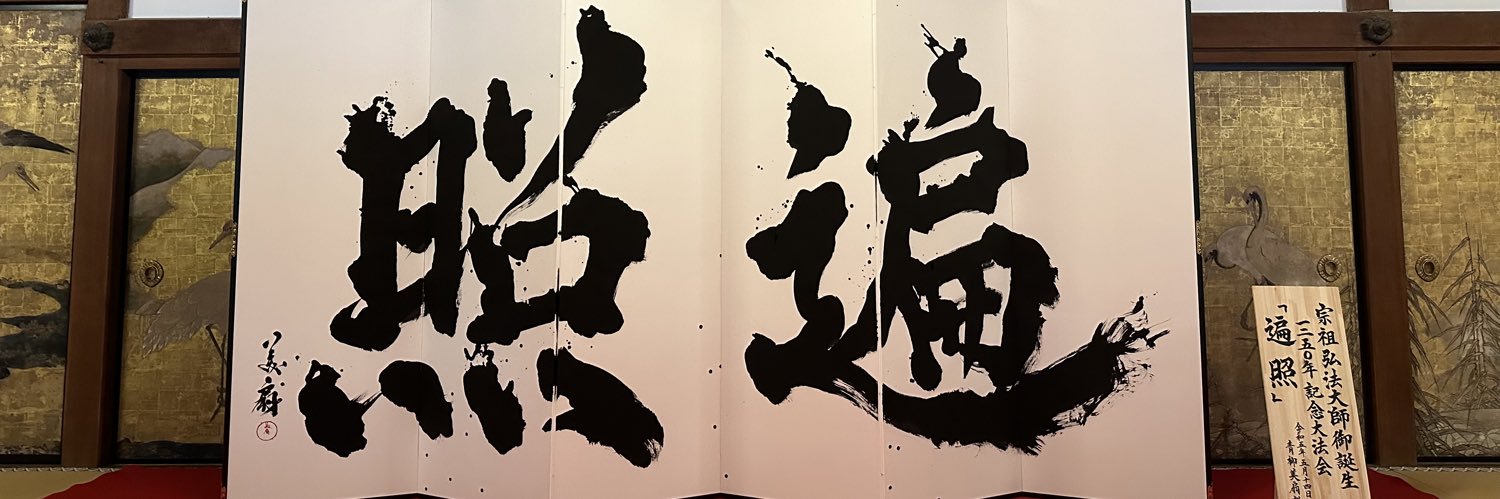 遍照
美扇
宗祖弘法大師御誕生
一二五〇年記念大法会
「遍照」
令和五年五月十四日
青柳美扇